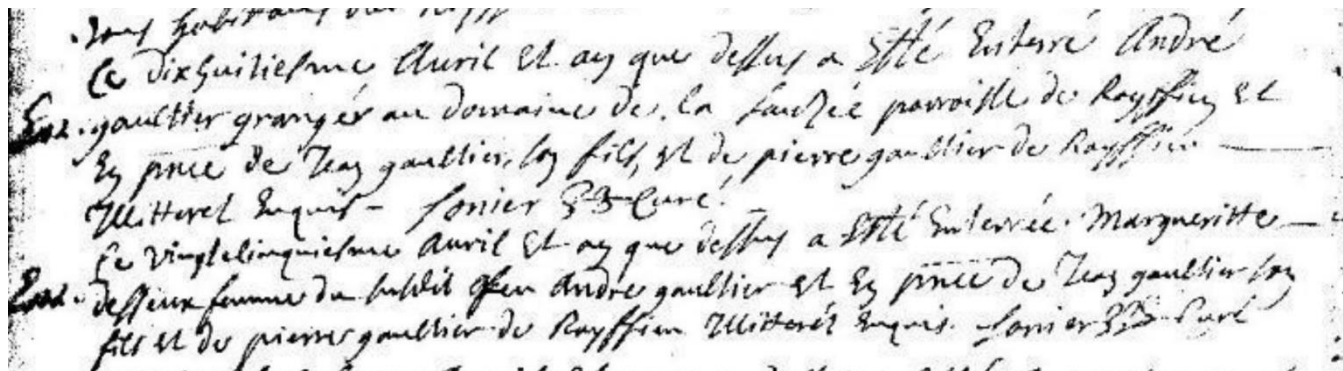 tous habitans dud Royff
Ce dixhuitiesme Auril et an que dessus a Esté Enterré André
Ent. gaultier granger au domaine de la parroisse de Royffieu et
En pnce de Jean gaultier son fils, et de pierre gaultier de Royffieu
Illitterés Enquis - Curé
Ce vingtcinquiesme Auril et an que dessus a Esté Enterrée Margueritte
Ent. desseux femme du susdit feu André gaultier et En pnce de Jean gaultier son
fils et de pierre gaultier de Royffieu Illitterés Enquis. Curé